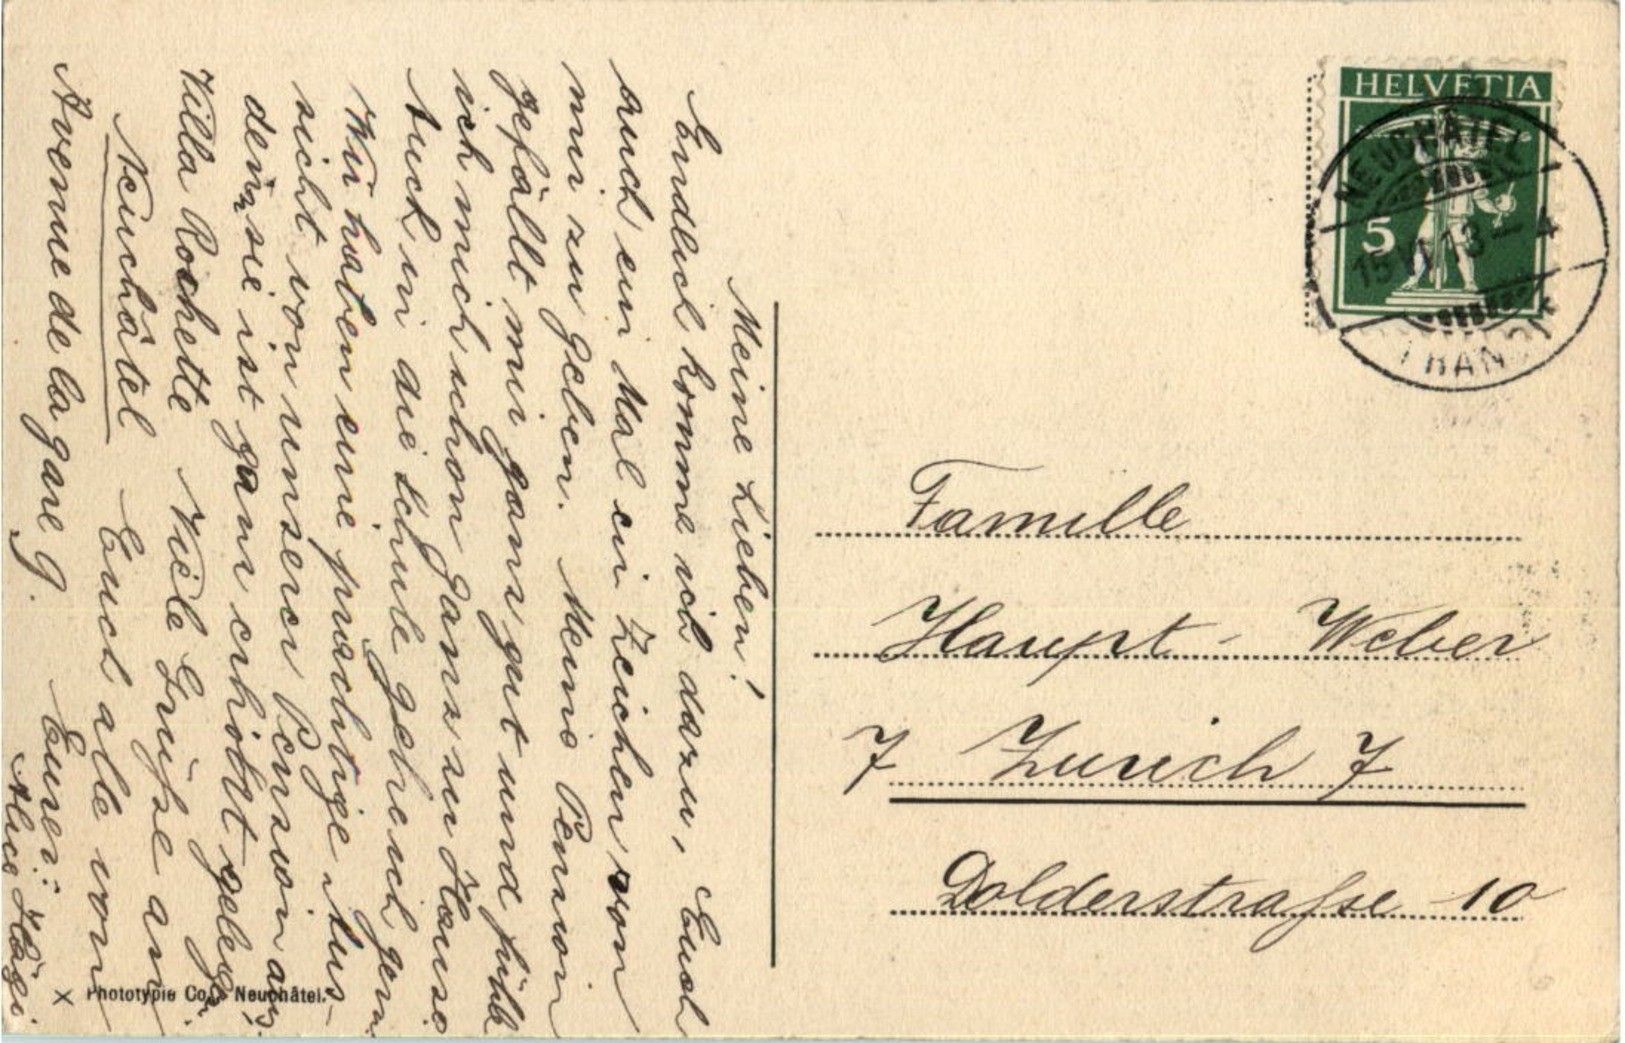 Meine Lieben!
Endlich komme ich dazu, Euch
auch ein Mal ein Zeichen von
mir zu geben. Meine Pension
gefällt mir ganz gut und fühle
ich mich schon ganz zu Hause
Auch in die Schule gehe ich gern.
Wir haben eine prächtige Aus-
sicht von unserer Pension aus,
denn sie ist ganz erhöht gelegen.
Villa Rochette Viele Grüsse an
Neuchâtel Euch alle von
Avenue de la gare 9. Eurer:
Alice Hägi.
HELVETIA
5
NEUCHÂTEL
15 VI 13 – 4
Famille
Haupt-Weber
7 Zurich 7
Dolderstrasse 10
X Phototypie Co., Neuchâtel.